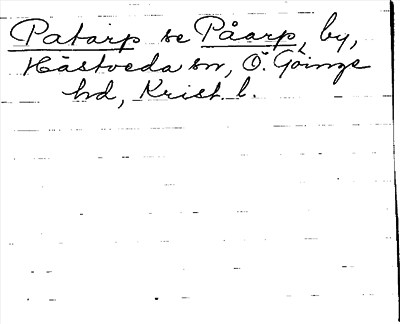 Patarp se Påarp, by,
Hästveda sn, Ö. Göinge
hd, Krist. l.